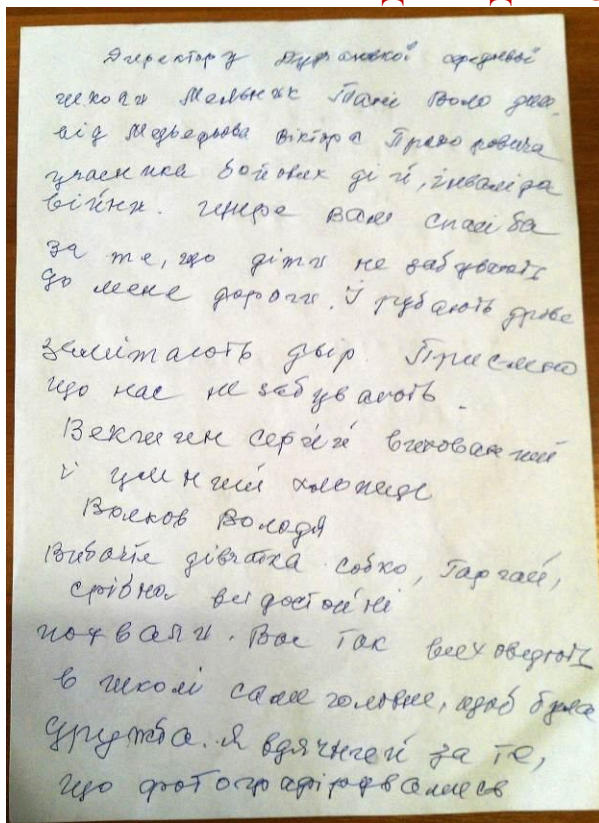 Директору середньої
школи Мельник Тані Воло
від Медведьова Віктора Прохоровича
учасника бойових дій, інваліда
війни. щире вам спасіба
за те, що діти не забувають
до мене дороги. І рубають дрова
замітають двір. Приємно
що нас не забувають.
Векличин Сергій вихований
і умний хлопець
Волков Володя
Вибачте дівчатка Собко, Гаргай,
Срібна всі достойні
похвали. Вас так виховують
в школі саме головне, щоб була
дружба. Я вдячний за те,
що фотографірувались